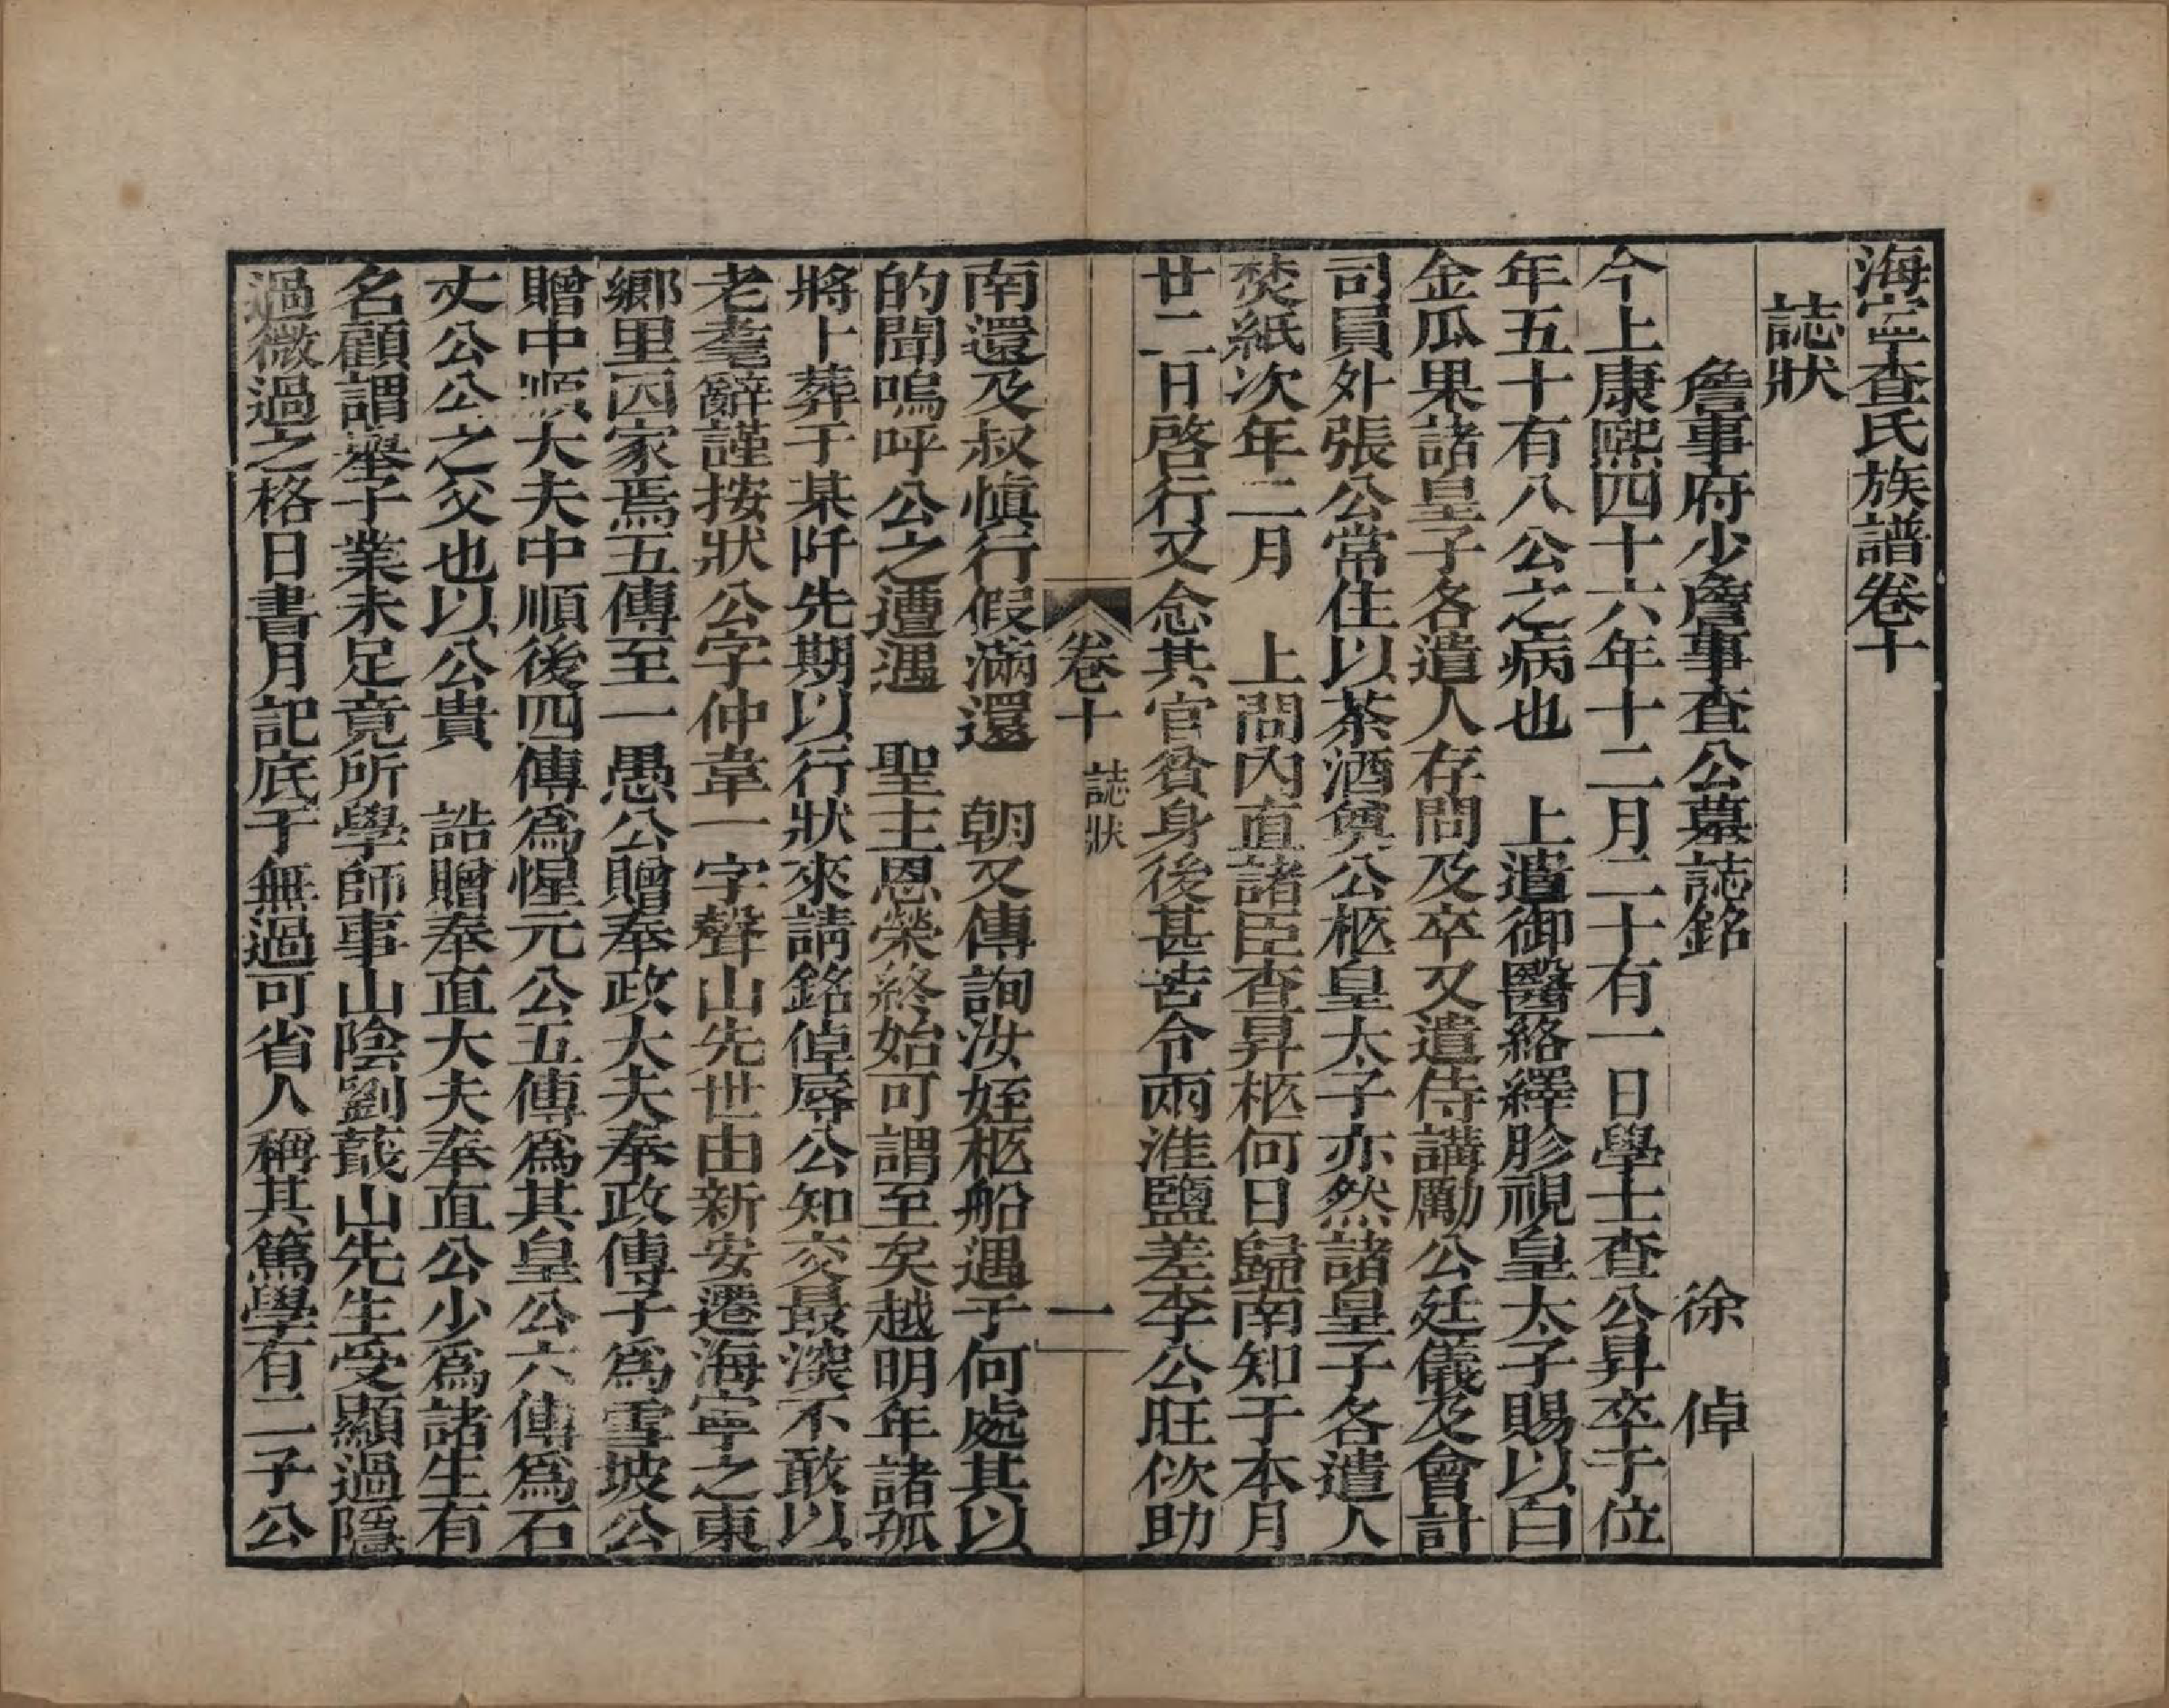 海寍查氏族譜卷十
誌狀
詹事府少詹事查公墓誌銘　徐倬
今上康熙四十六年十二月二十有一日學士查公昇卒于位
年五十有八公之病也　上遣御醫絡繹胗視皇太子賜以白
金瓜果諸皇子各遣人存問及卒又遣侍講勵公廷儀及會計
司員外張公常住以茶酒奠公柩皇太子亦然諸皇子各遣人
焚紙次年二月　上問內直諸臣查昇柩何日歸南知于本月
廿二日啓行又念其官貧身後甚苦令兩淮鹽差李公旺佽助
卷十　誌狀　一
南還及叔愼行假滿還　朝又傳詢汝姪柩船遇于何處其以
的聞嗚呼公之遭遇　聖主恩榮終始可謂至矣越明年諸孤
將卜葬于某阡先期以行狀來請銘倬辱公知交最深不敢以
老耄辭謹按狀公字仲韋一字聲山先世由新安遷海寧之東
鄉里因家焉五傳至一愚公贈奉政大夫奉政傳子爲雪坡公
贈中順大夫中順後四傳爲惺元公五傳爲其皇公六傳爲石
丈公公之父也以公貴　誥贈奉直大夫奉直公少爲諸生有
名顧謂舉子業未足竟所學師事山陰劉蕺山先生受顯過隱
過微過之格日書月記底于無過可省人稱其篤學有二子公